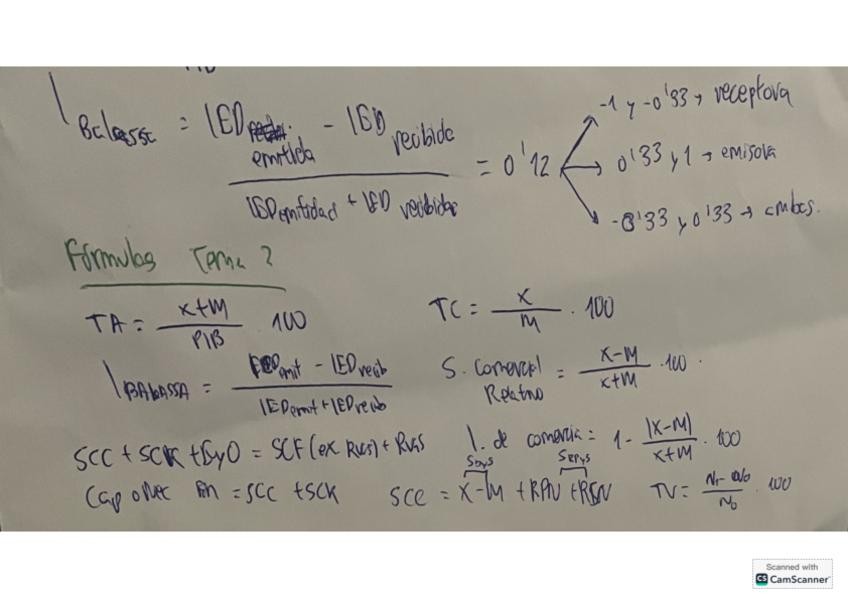 I Balassa = IED emitida - IED recibida / IED emitidas + IED recibidas = 0'12
-1 y -0'33 → receptora
0'33 y 1 → emisora
-0'33 y 0'33 → ambas.
Fórmulas Tema 2
TA = X+M / PIB · 100
TC = X / M · 100
I BALASSA = IED emit - IED recib / IED emit + IED recib
S. Comercial Relativo = X-M / X+M · 100.
SCC + SCK + EyO = SCF (ex Rvas) + Rvas
I. de comercia = 1 - |X-M| / X+M · 100
Cap o Nec fin = SCC + SCK
SCC = X-M + RPN + RSN
TV = Nf - No / No · 100
Scanned with
CS CamScanner